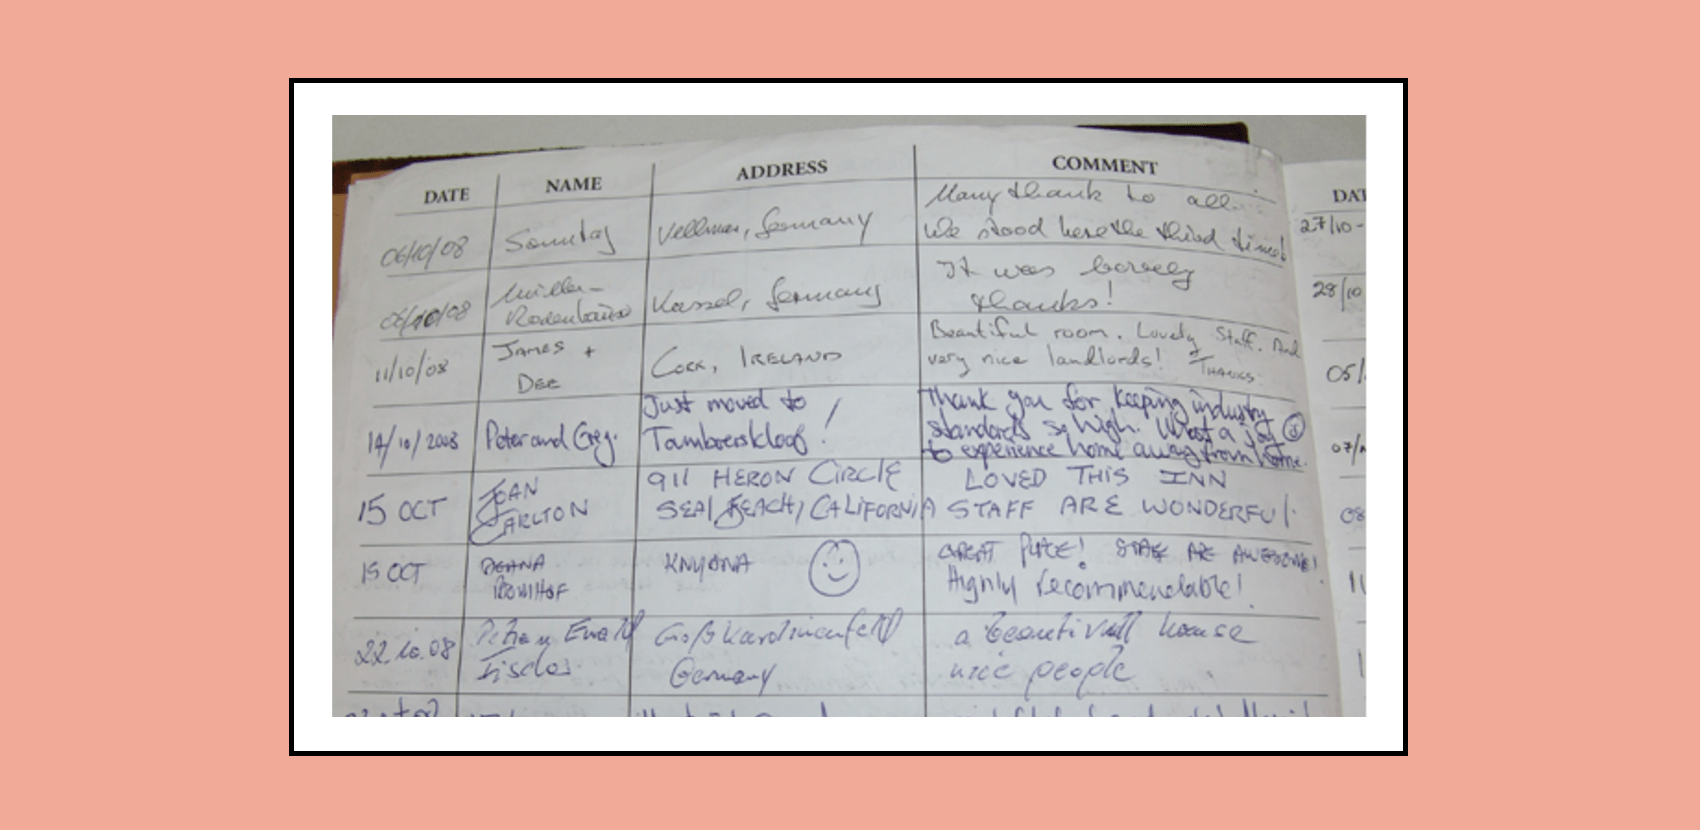 DATE NAME ADDRESS COMMENT
06/10/08 Sonntag Vellmar, Germany Many thank to all.
We stood here the third time!
06/10/08 Müller- Kassel, Germany It was
thanks!
11/10/08 JAMES + DEE CORK, IRELAND Beautiful room. Lovely Staff. And
very nice landlords! THANKS.
14/10/2008 Peter and Greg. Just moved to Thank you for keeping industry
Tamboerskloof! standards so high. What a joy
to experience home away from home.
15 OCT JOAN CARLTON 911 HERON CIRCLE LOVED THIS INN
SEAL BEACH, CALIFORNIA STAFF ARE WONDERFUL
15 OCT DEANA KNYSNA GREAT PLACE! STAFF ARE AWESOME!
Highly recommendable!
22.10.08 Ewald a beautivull house
Germany nice people
27/10-
28/10
05/
07/
08